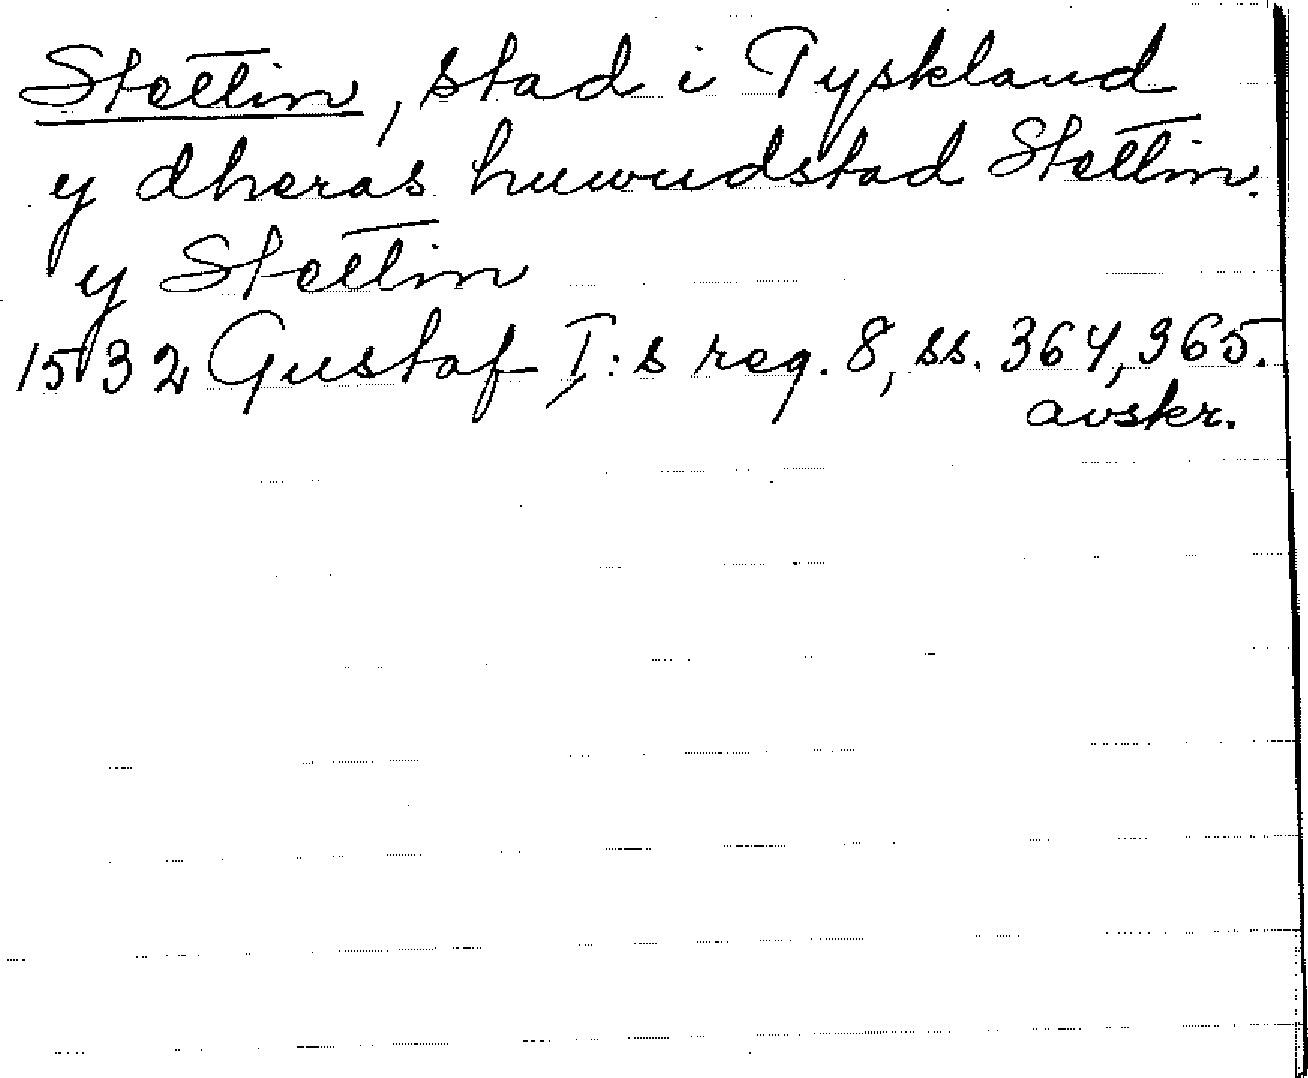 Stettin, stad i Tyskland
y dheras huwudstad Stettin.
y Stettin
1532 Gustaf I:s reg. 8, ss. 364, 365.
avskr.